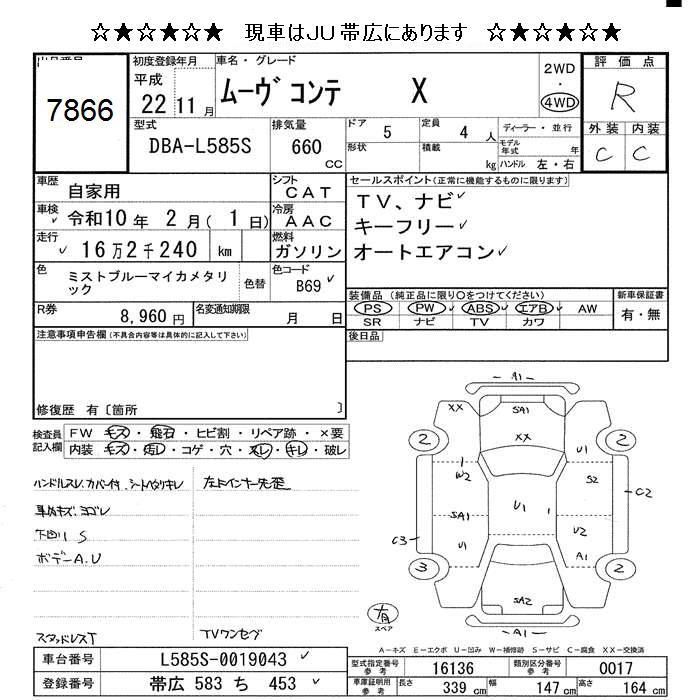 ☆★☆★☆★ 現車はJU帯広にあります ☆★☆★☆★
出品番号
7866
初度登録年月
平成
22 11月
車名・グレード
ムーヴ コンテ X
2WD
・
4WD
評価点
R
型式
DBA-L585S
排気量
660 CC
ドア 5
定員 4 人
形状
積載 kg
ディーラー・並行
モデル年式 年
ハンドル 左・右
外装 内装
C C
車歴 自家用
シフト CAT
車検 令和10年 2月(1日)
冷房 AAC
走行 16万2千240 km
燃料 ガソリン
色 ミストブルーマイカメタリック
色替
色コード B69
R券 8,960円
名変通知期限 月 日
セールスポイント(正常に機能するものに限ります)
TV、ナビ
キーフリー
オートエアコン
装備品(純正品に限り○をつけてください)
新車保証書
PS PW ABS エアB AW
SR ナビ TV カワ
有・無
注意事項申告欄(不具合内容等は具体的に記入して下さい)
後日品
修復歴 有〔箇所 〕
検査員記入欄
FW キズ・飛石・ヒビ割・リペア跡・×要
内装 キズ・汚レ・コゲ・穴・スレ・キレ・破レ
ハンドルスレ、カバー付、シートヘタリキレ
左上インナー先歪
車内キズ・ヨゴレ
下回リS
ボデーA.U
スタッドレスT
TVワンセグ
A1
XX SA1
XX
2 2
U1
W2 S2
U1
C2
SA1
U2
C3 U1
A1
3 2
SA2
A1
有
スペア
A-キズ E-エクボ U-凹み W-補修跡 S-サビ C-腐食 XX-交換済
車台番号 L585S-0019043
登録番号 帯広 583 ち 453
型式指定番号参考 16136
類別区分番号参考 0017
車庫証明用参考 長さ 339 cm 幅 147 cm 高さ 164 cm